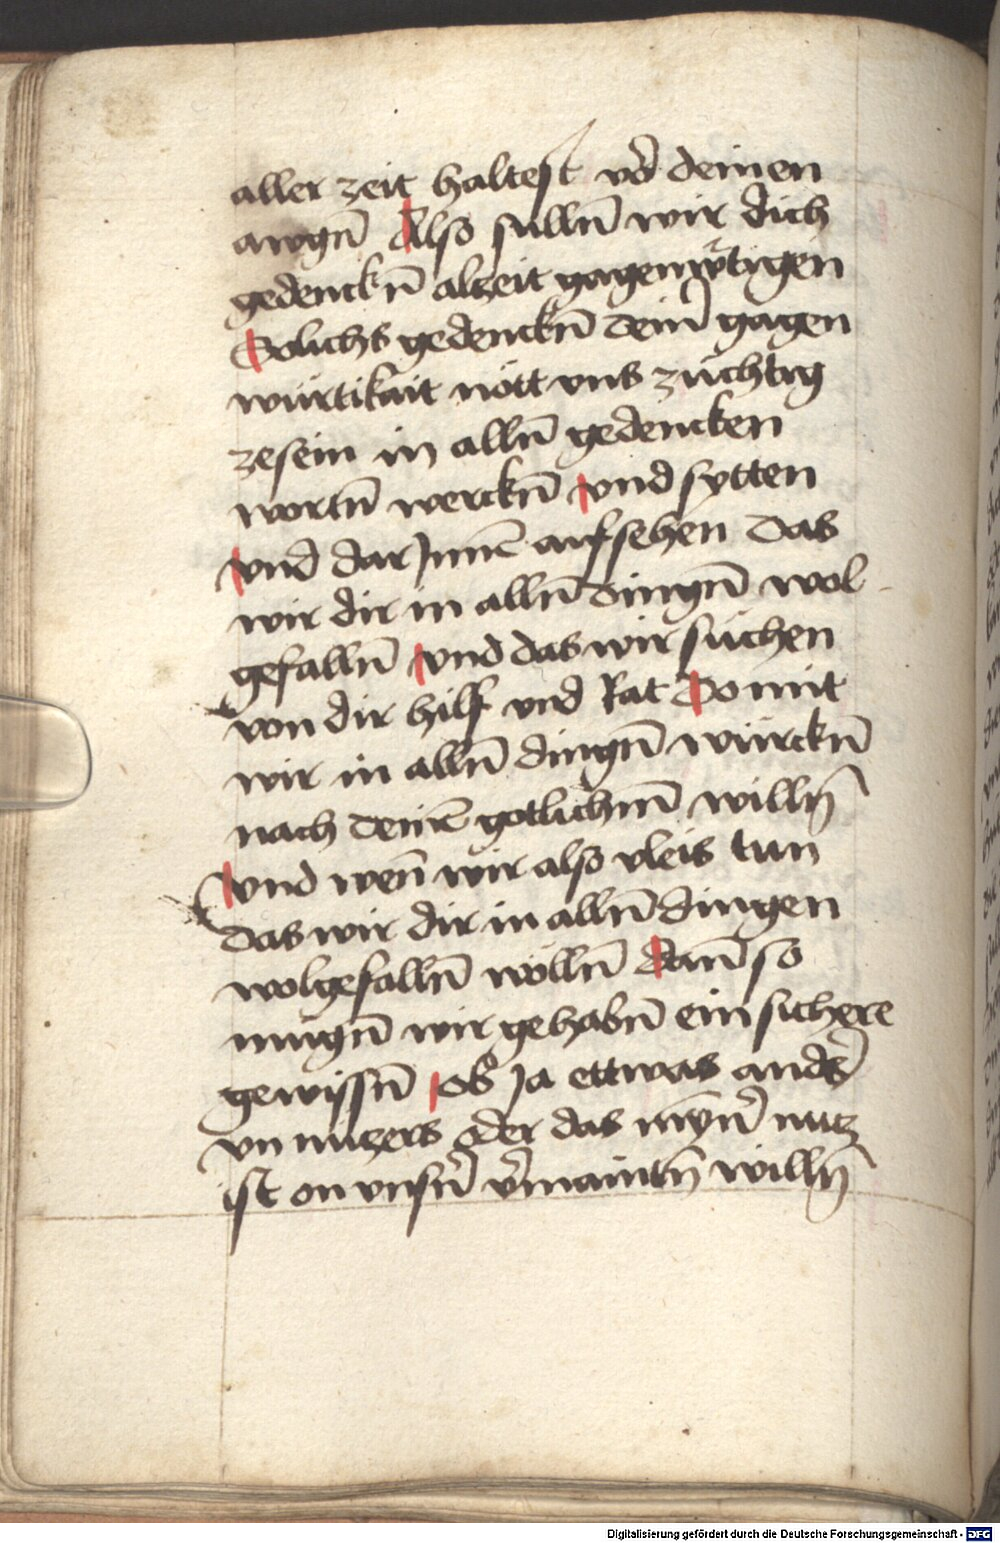 aller zeit haltest vo̾ deinen
awgn̄ Also sulln̄ wir dich
gedenckn̄ alzeit gagenw̾tigen
Solichs gedenckn̄ dein̾ gagen
würtikait nött vns züchtig
zesein in alln̄ gedencken
wortn̄ werckn̄ vnd sytten
vnd dar Jnnē aufsehen das
wir dir in alln̄ dingn̄ wol-
gefalln̄ vnd das wir süchen
von dir hilf vnd Rat So mit
wir in alln̄ dingn̄ würckn̄
nach deinē gotlichn̄ willn̄
vnd wen̄ wir also vleis tun
das wir dir in alln̄ dingen
wolgefalln̄ wölln̄ dan̄ so
mügn̄ wir gehabn̄ ein sichere
gewissn̄ ob Ja ettwas and̾s
vn nutzers oder das myn̾ nutz
ist on vnsn̾ v̾maintn̄ willn̄
Digitalisierung gefördert durch die Deutsche Forschungsgemeinschaft - DFG